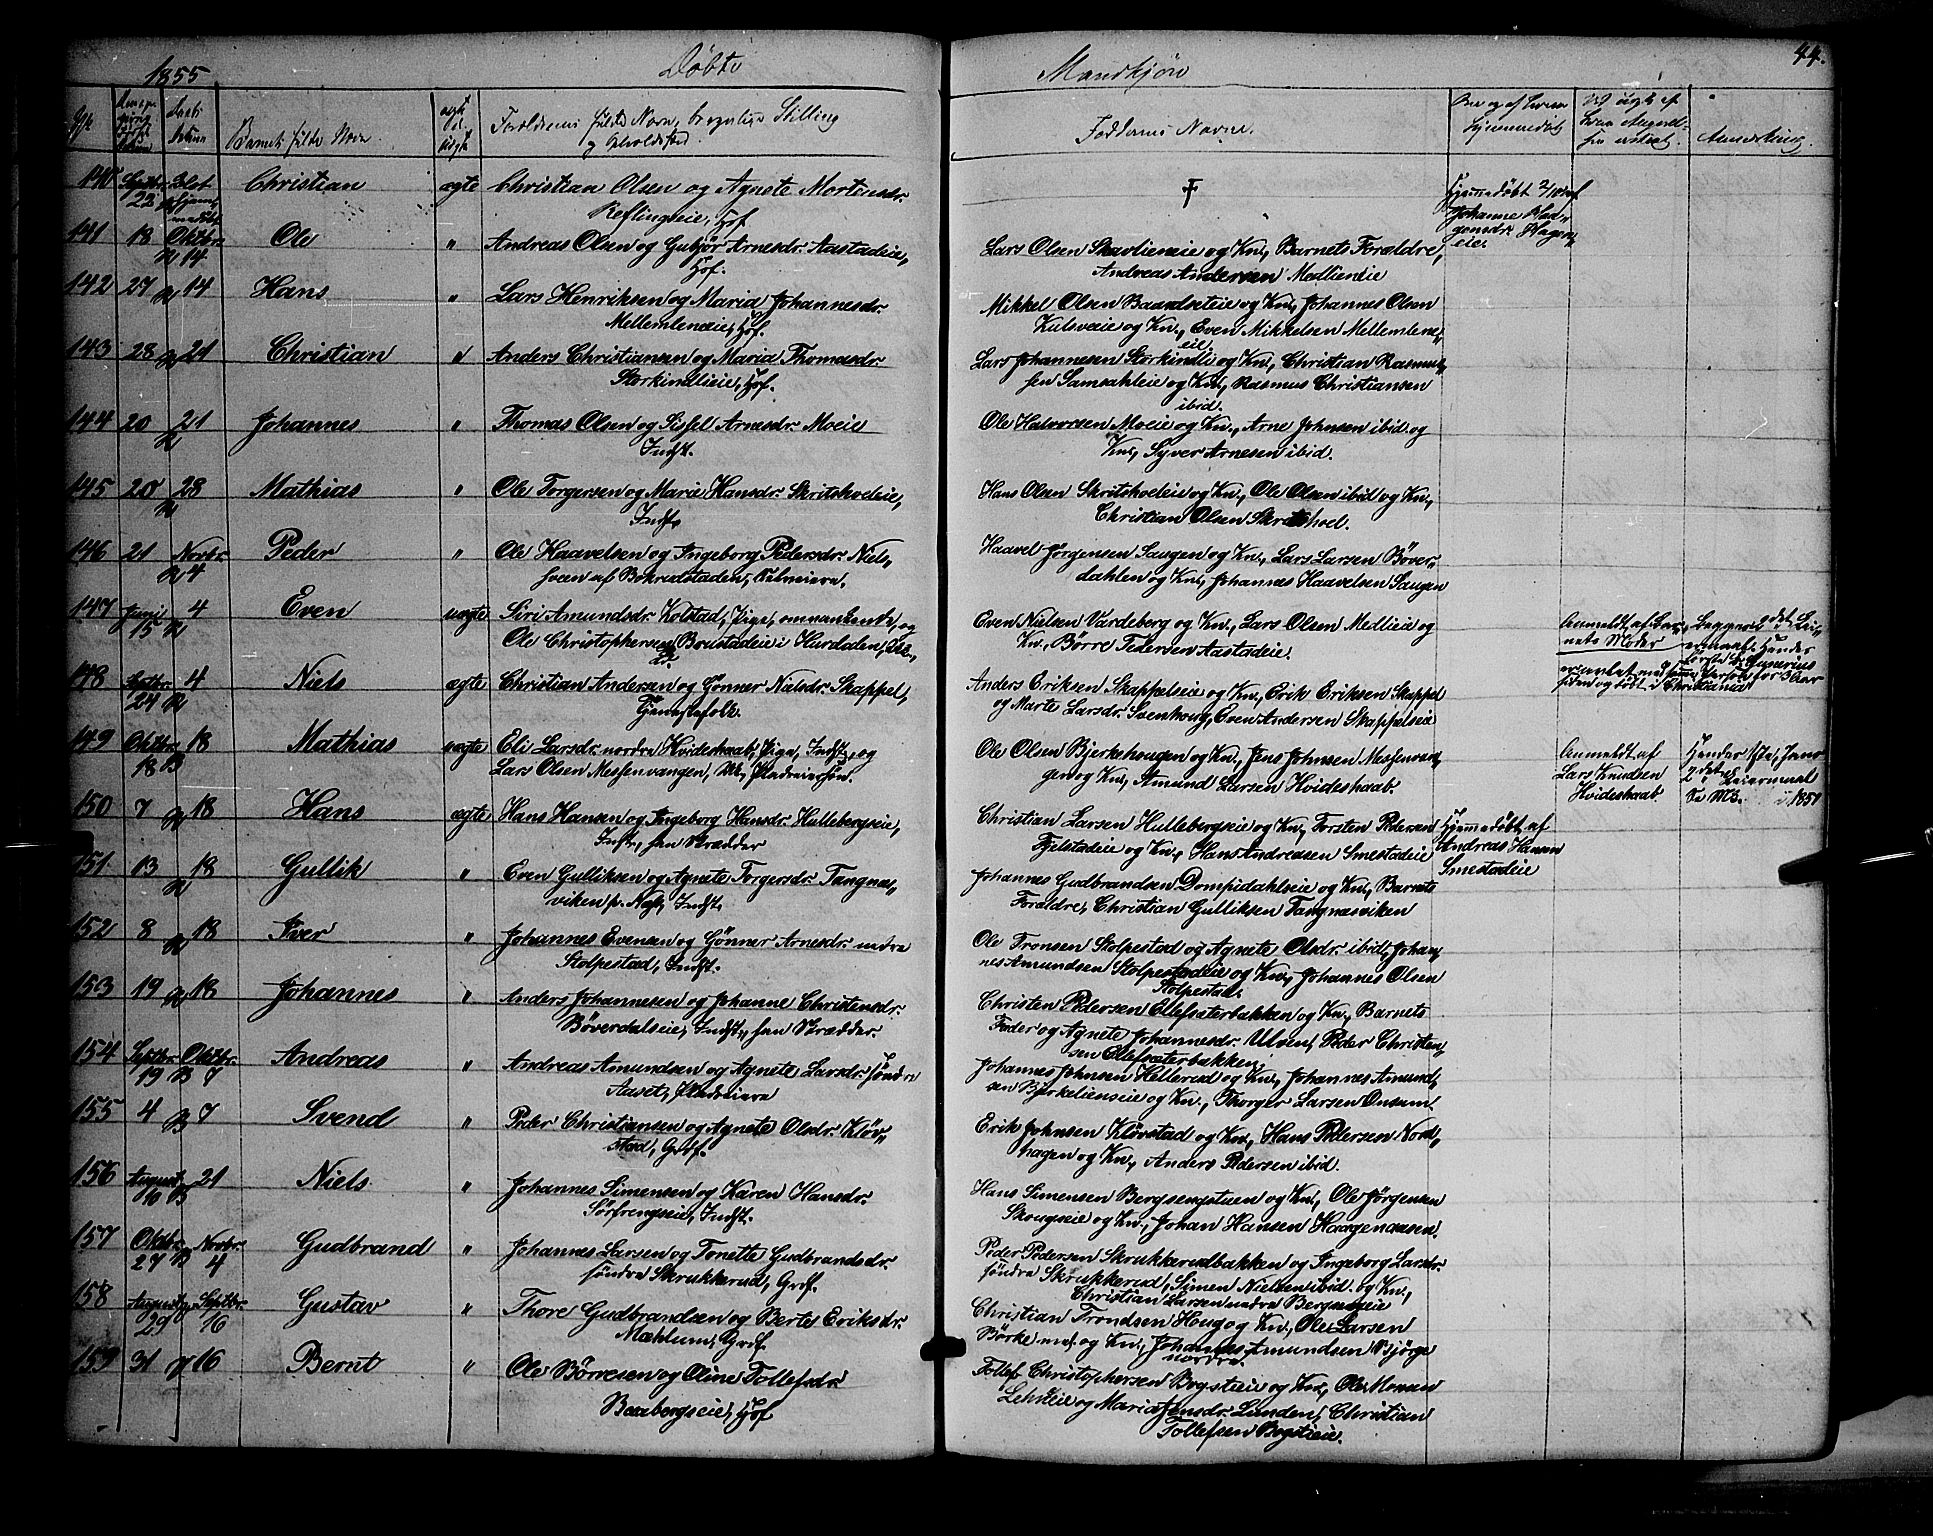 1855 Døbte Mandkjøn 44.
Barnets fulde Navn
Forældrenes fulde Navn, borgerlige Stilling
og Opholdssted.
Faddernes Navne.
Anmerkning.
140 Septbr. 23 Christian ægte Christian Olsen og Agnete Mortensdr.
Reflingseie, Hof
Hjemmedøbt af
Johanne
141 18 Oktbr. 14 Ole " Andreas Olsen og Gubjør Arnesdr. Aastadeie,
Hof.
Lars Olsen Skavlieneie og Kn., Barnets Forældre,
Andreas Andersen Medlieneie
142 27 14 Hans " Lars Henriksen og Maria Johannesdr.
Mellemleneie, Hof.
Mikkel Olsen Baardseteie og Kn., Johannes Olsen
Kulsveeie og Kn., Even Mikkelsen Mellemlene,
eie.
143 28 21 Christian " Anders Christiansen og Maria Thomasdr.
Storkindlieie, Hof.
Lars Johannesen Storkindlie og Kn., Christian Rasmus,
sen Samsahleie og Kn., Rasmus Christiansen
ibid.
144 20 21 Johannes " Thomas Olsen og Sissel Arnesdr. Moeie
Indst.
Ole Halvorsen Moeie og Kn., Arne Johnsen ibid. og
Kn., Syver Arnesen ibid.
145 20 28 Mathias " Ole Torgersen og Maria Hansdr. Skritshoeleie,
Indst.
Hans Olsen Skritshoeleie og Kn., Ole Olsen ibid og Kn.,
Christian Olsen Skritshoel.
146 21 Novbr. 4 Peder " Ole Haavelsen og Ingeborg Pedersdr. Niels,
hven af Bokrudstaden, Selveiere.
Haavel Jørgensen Saugen og Kn., Lars Larsen Bøver,
dahlen og Kn., Johannes Haavelsen Saugen
147 Juni 15 4 Even uægte Siri Amundsdr. Kolstad, Pige, omvankende, og
Ole Christophersen Brustadeie i Hurdalen,
Even Nielsen Vardeberg og Kn., Lars Olsen Medlieie og
Kn., Børre Pedersen Aastadeie.
Anmeldt af Bar,
nets Moder
148 Septbr. 24 4 Niels ægte Christian Andersen og Gønner Nielsdr. Skappel,
Tjenestefolk.
Anders Eriksen Skappelseie og Kn., Erik Eriksen Skappel
og Marte Larsdr. Svenhoug, Even Andersen Skappelseie
149 Oktbr. 18 18 Mathias uægte Eli Larsdr. nordre Hvideskaab, Pige, Indst. og
Lars Olsen Messenvangen, Uk., Gaardeiersøn.
Ole Olsen Bjerkehougen og Kn., Jens Johnsen Messenvan,
gen og Kn., Amund Larsen Hvideskaab.
Anmeldt af
Lars Knudsen
Hvideskaab.
150 7 18 Hans ægte Hans Hansen og Ingeborg Hansdr. Hullebergseie,
Indst., han Skrædder
Christian Larsen Hullebergseie og Kn., Torsten Pedersen
Fjelstadeie og Kn., Hans Andreasen Smestadeie
Hjemmedøbt af
Andreas Hansen
Smestadeie
151 13 18 Gullik " Even Gulliksen og Agnete Torgersdr. Tangnæs,
viken p. Næs, Indst.
Johannes Gudbrandsen Dompidahlseie og Kn., Barnets
Forældre, Christian Gulliksen Tangnæsviken
152 8 18 Iver " Johannes Evensen og Gønner Arnesdr. nedre
Stolpestad, Indst.
Ole Tronsen Stolpestad og Agnete Olsdr. ibid, Johan,
nes Amundsen Stolpestadeie og Kn., Johannes Olsen
Stolpestad.
153 19 18 Johannes " Anders Johannesen og Johanne Christensdr.
Bøverdalseie, Indst., han Skrædder.
Christen Pedersen Ellefsæterbakken og Kn., Barnets
Fader og Agnete Johannesdr. Ulven, Peder Christen,
sen Ellefsæterbakken.
154 Septbr. 19 Oktbr. 7 Andreas " Andreas Amundsen og Agnete Larsdr. søndre
Aaset, Gaardeiere
Johannes Johnsen Hellerud og Kn., Johannes Amund,
sen Bjerkelienseie og Kn., Thorger Larsen Onsum.
155 4 7 Svend " Peder Christiansen og Agnete Olsdr. Kløv,
stad, Grdf.
Erik Johnsen Kløvstad og Kn., Hans Pedersen Nord,
hagen og Kn., Anders Pedersen ibid.
156 August 10 21 Niels " Johannes Simensen og Karen Hansdr.
Sørfrengseie, Indst.
Hans Simensen Bergsengstuen og Kn., Ole Jørgensen
Skougseie og Kn., Johan Hansen Haagenaasen.
157 Oktbr. 27 Novbr. 4 Gudbrand " Johannes Larsen og Tonette Gudbrandsdr.
søndre Skrukkerud, Grdf.
Peder Pedersen Skrukkerudbakken og Ingeborg Larsdr.
søndre Skrukkerud, Simen Nielsen ibid. og Kn.,
Christian Larsen nedre Bergsseie
158 August 29 Septbr. 16 Gustav " Thore Gudbrandsen og Berte Eriksdr.
Mæhlum, Grdf.
Christian Trondsen Houg og Kn., Ole Larsen
Børke og Kn., Johannes Amundsen Bjørge
nordre.
159 31 16 Bernt " Ole Børresen og Oline Tollefsdr.
Berebergseie, Hof
Tollef Christophersen Bogstieie og Kn., Ole
og Maria Jensdr. Lunden, Christian
Tollefsen Bogstieie.